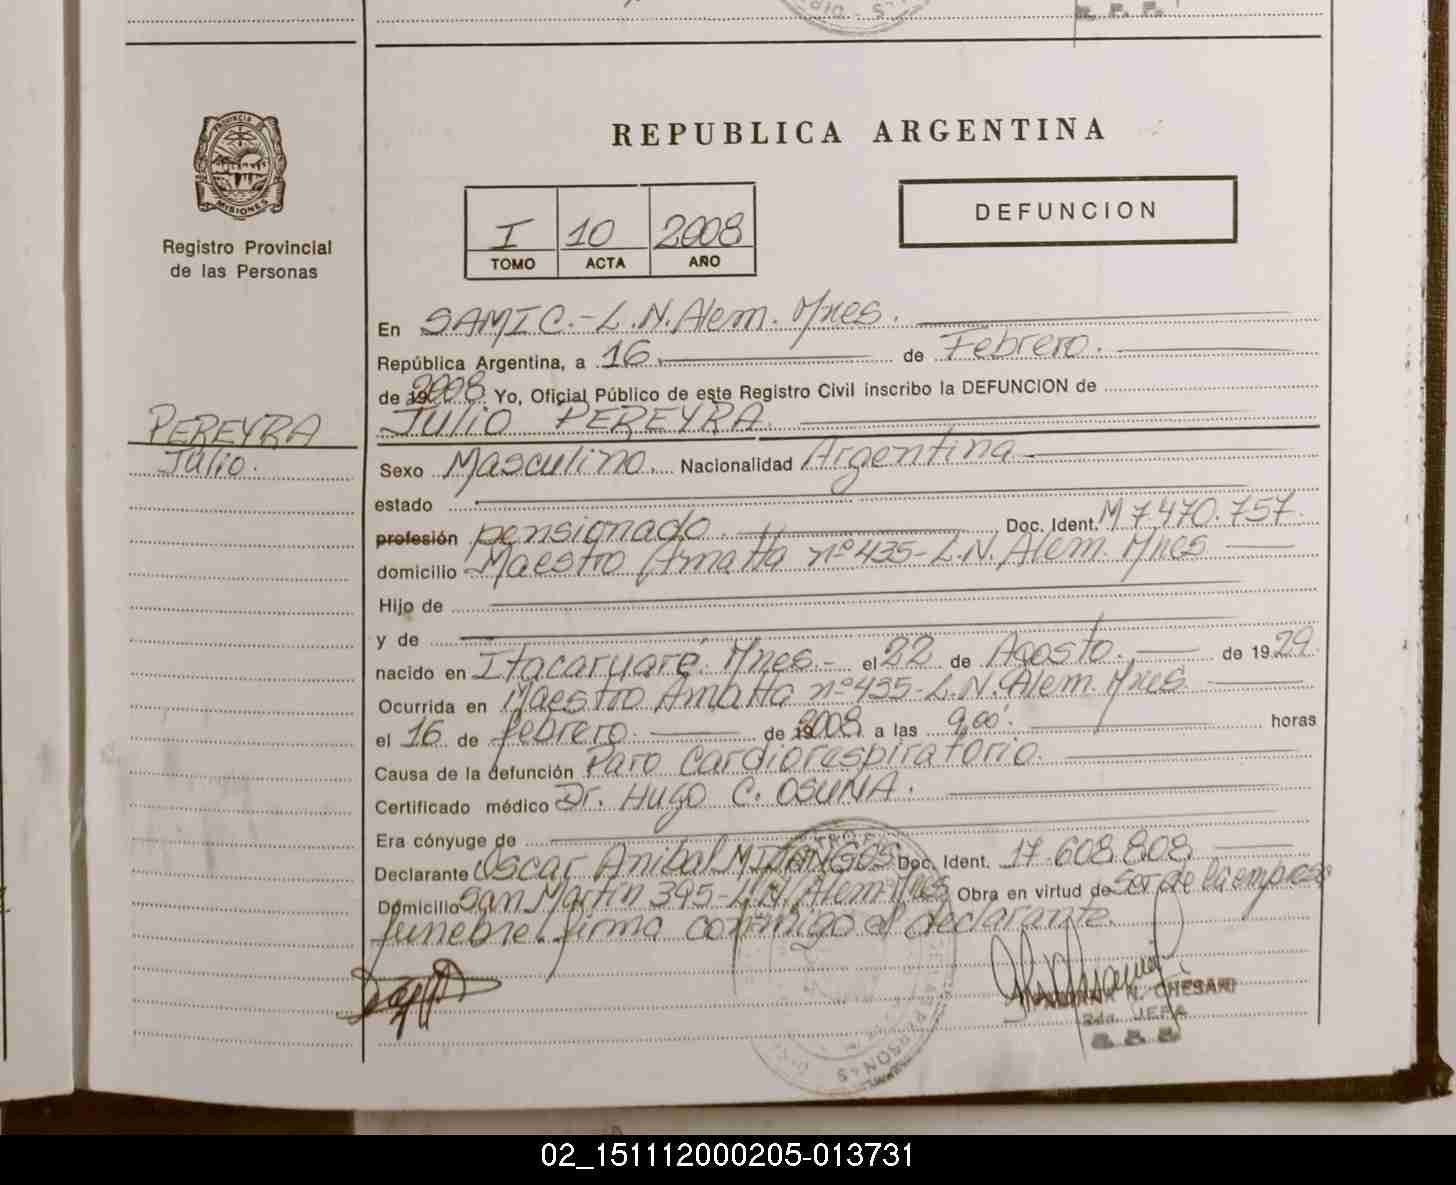 PROVINCIA DE
MISIONES
Registro Provincial
de las Personas
PEREYRA
Julio.
REPUBLICA ARGENTINA
I 10 2008
TOMO ACTA AÑO
DEFUNCION
En SAMIC.-L.N.Alem. Mnes.
República Argentina, a 16. de Febrero.
de 2008. Yo, Oficial Público de este Registro Civil inscribo la DEFUNCION de
Julio PEREYRA.
Sexo Masculino. Nacionalidad Argentina
estado
profesión pensionado. Doc. Ident. M 7.470.757.
domicilio Maestro Amatta nº 435-L.N.Alem. Mnes
Hijo de
y de
nacido en Itacaruaré. Mnes.- el 22 de Agosto. de 1929.
Ocurrida en Maestro Amatta nº 435-L.N.Alem. Mnes.
el 16 de febrero. de 2008 a las 9,00'. horas
Causa de la defunción Paro Cardiorespiratorio.
Certificado médico Dr. Hugo C. OSUNA.
Era cónyuge de
Declarante Oscar Anibal Doc. Ident. 17.608.808
Domicilio San Martín 395-L.N.Alem Mnes Obra en virtud de Ser de la empresa
funebre. firma conmigo el declarante.
N. CHESANI
2da. JEFA
PERSONAS
02_151112000205-013731